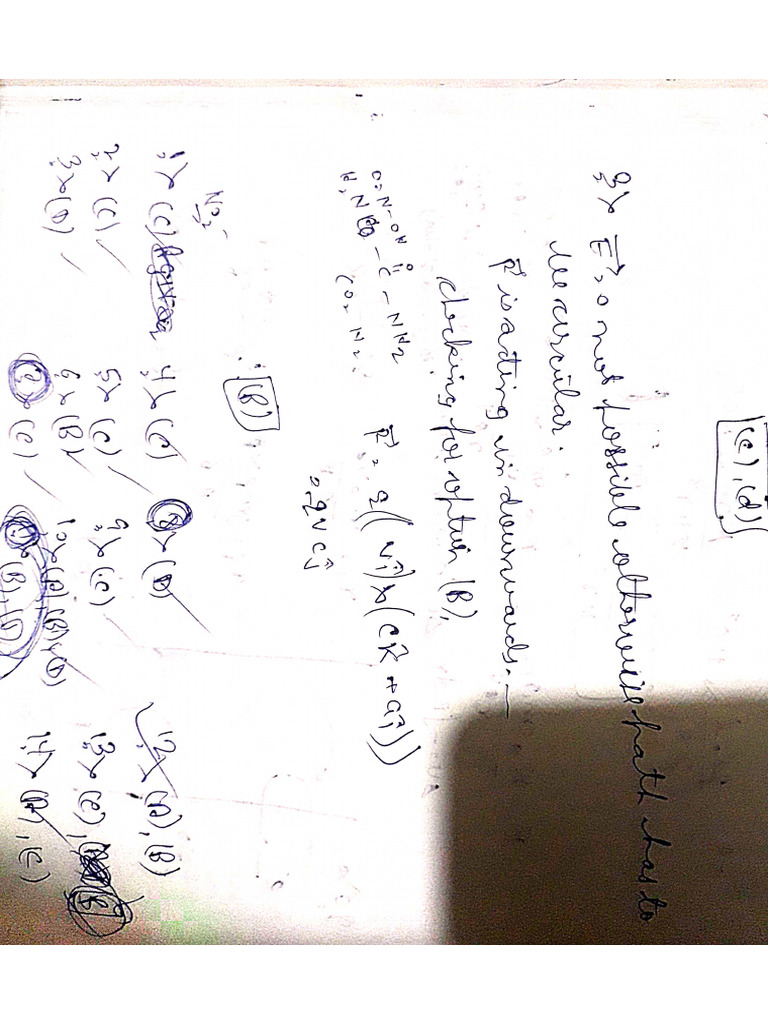 (c), (d)
9> E = 0 not possible otherwise path has to
be circular.
F is acting in downwards. —
checking for option (B),
F = q((vî) × (ck̂ + aî))
= qvcĵ
O
‖
– C – NH2
CO2 N2
∴ (B)
NO2-
1> (C)
2> (C)
3> (D)
4> (C)
5> (C)
6> (B)
7> (C)
8> (D)
9> (C)
10> (A), (B), (D)
(B), (D)
12> (A), (B)
13> (C), (B)
14> (A), (C)